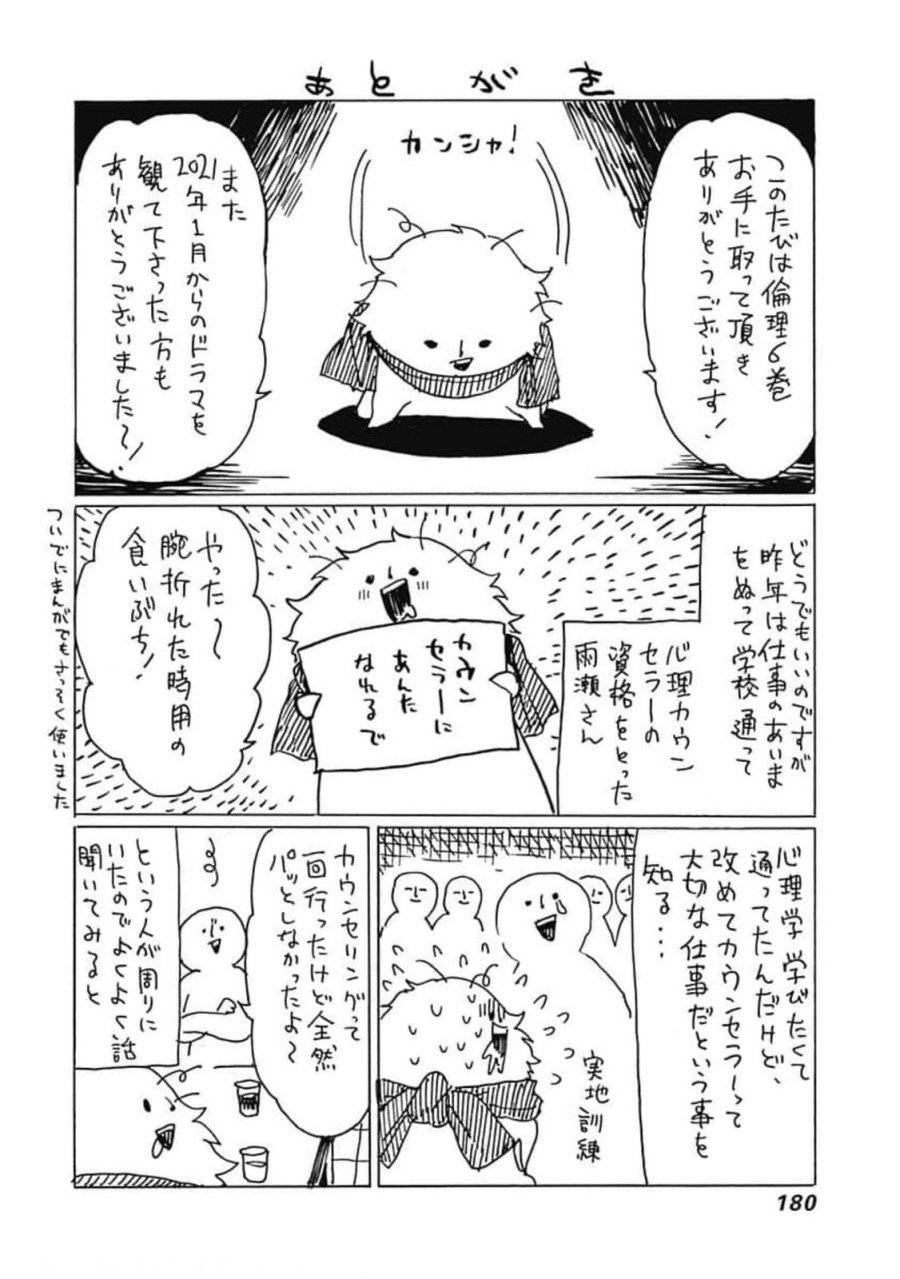 あとがき
このたびは倫理6巻
お手に取って頂き
ありがとうございます!
カンシャ!
また
2021年1月からのドラマを
観て下さった方も
ありがとうございました〜!
どうでもいいのですが
昨年は仕事のあいま
をぬって学校通って
心理カウン
セラーの
資格をとった
雨瀬さん
カウン
セラーに
あんた
なれるで
やった〜
腕折れた時用の
食いぶち!
ついでにまんがでもさっそく使いました
心理学学びたくて
通ってたんだけど、
改めてカウンセラーって
大切な仕事だという事を
知る…
実地訓練
カウンセリングって
一回行ったけど全然
パッとしなかったよ〜
という人が周りに
いたのでよくよく話
聞いてみると
180